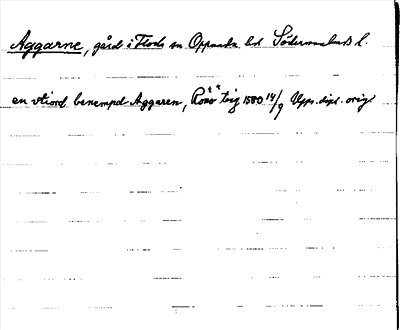 Aggarne, gård i Floda sn Oppunda hd Södermanlands l.
en vtiord benempd Aggaren, Rönö Tvig 1580 14/9 Upps. dipl. orig.